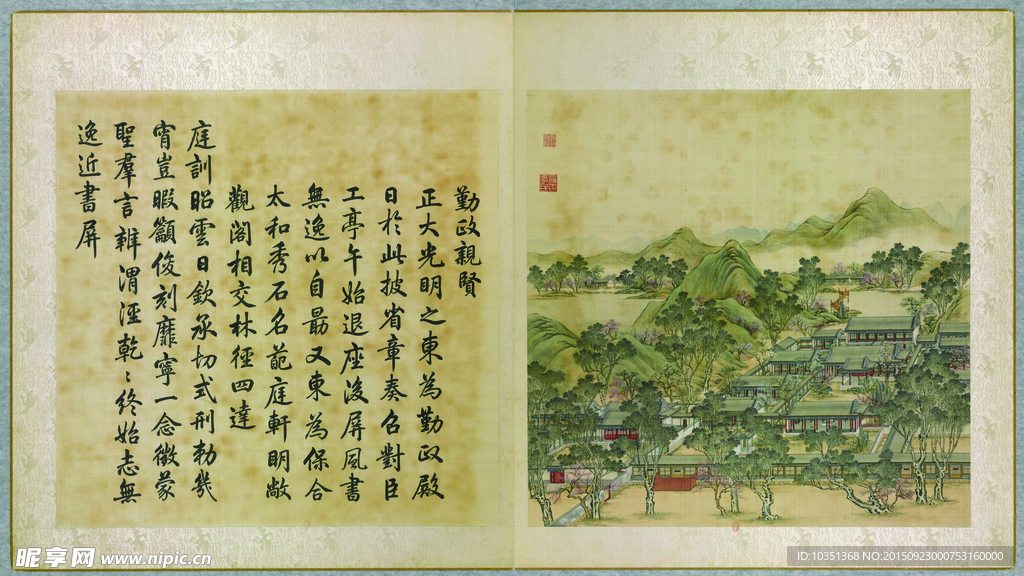 勤政親賢
正大光明之東為勤政殿
日於此披省章奏召對臣
工亭午始退座後屏風書
無逸以自勗又東為保合
太和秀石名葩庭軒明敞
觀閣相交林徑四達
庭訓昭雲日欽承切式刑勅幾
宵豈暇籲俊刻靡寧一念徵蒙
聖羣言辨渭涇乾〻終始志無
逸近書屏
昵享网 www.nipic.cn
ID:10351368 NO:20150923000753160000